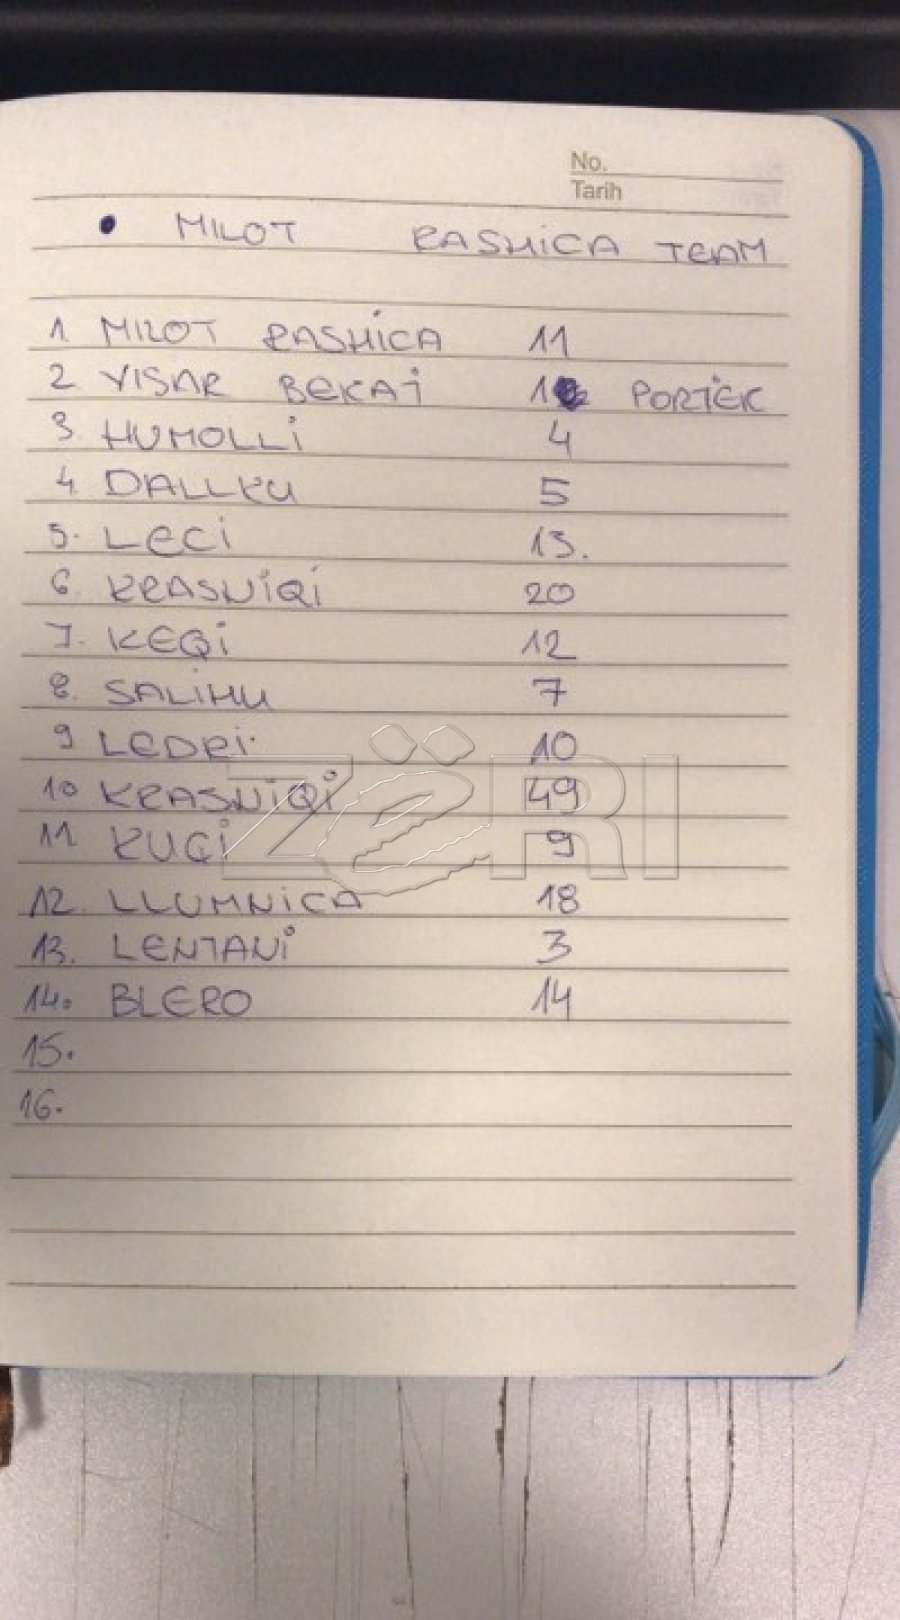 No.
Tarih
• MILOT RASHICA TEAM
1 MILOT RASHICA 11
2 VISAR BEKAJ PORTIER
3 HUMOLLI 4
4. DALLKU 5
5. LECI 13.
6 KRASNIQI 20
7. KEQI 12
8. SALIHU 7
9 LEDRI. 10
10 KRASNIQI 49
11 KUCI 9
12. LLUMNICA 18
13. LENJANI 3
14. BLERO 14
15.
16.
ZËRI